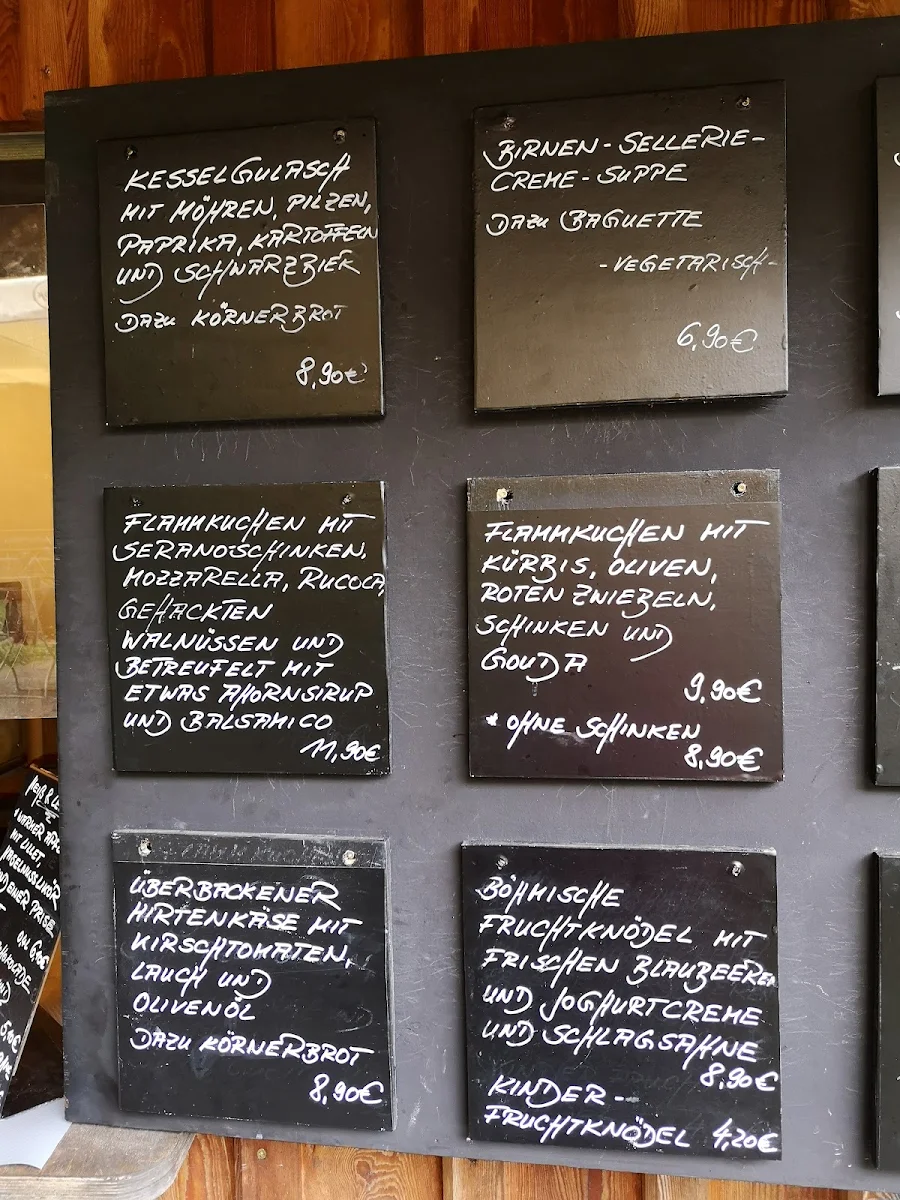 KESSELGULASCH
MIT MÖHREN, PILZEN,
PAPRIKA, KARTOFFELN
UND SCHWARZBIER
DAZU KÖRNERBROT
8,90€
BIRNEN-SELLERIE-
CREME-SUPPE
DAZU BAGUETTE
-VEGETARISCH-
6,90€
FLAMMKUCHEN MIT
SERANOSCHINKEN,
MOZZARELLA, RUCOLA,
GEHACKTEN
WALNÜSSEN UND
BETREUFELT MIT
ETWAS AHORNSIRUP
UND BALSAMICO
11,90€
FLAMMKUCHEN MIT
KÜRBIS, OLIVEN,
ROTEN ZWIEBELN,
SCHINKEN UND
GOUDA
9,90€
* OHNE SCHINKEN
8,90€
ÜBERBACKENER
HIRTENKÄSE MIT
KIRSCHTOMATEN,
LAUCH UND
OLIVENÖL
DAZU KÖRNERBROT
8,90€
BÖHMISCHE
FRUCHTKNÖDEL MIT
FRISCHEN BLAUBEEREN
UND JOGHURTCREME
UND SCHLAGSAHNE
8,90€
KINDER-
FRUCHTKNÖDEL 4,20€
MIT LILLET
EINER PRISE